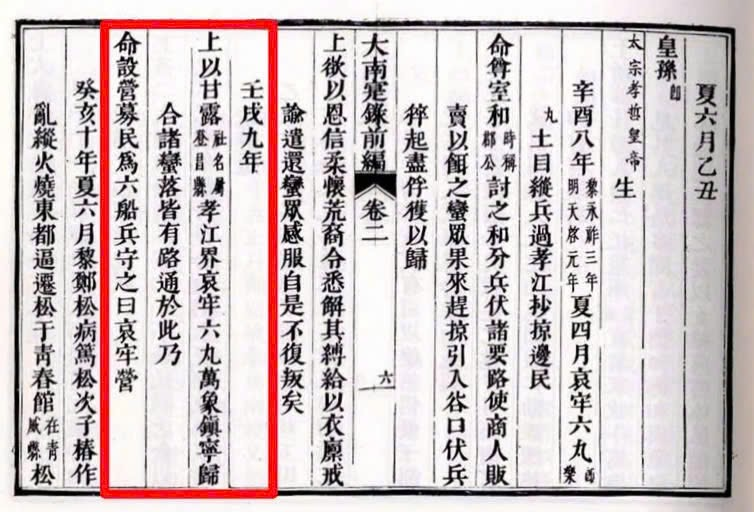 夏六月乙丑
皇孫卽
太宗孝哲皇帝生
辛酉八年黎永祚三年明天啓元年夏四月哀牢六丸卽樂
丸土目縱兵過孝江抄掠邊民
命尊室和時稱郡公討之和分兵伏諸要路使商人販
賣以餌之蠻眾果來趕掠引入谷口伏兵
猝起盡俘獲以歸
大南寔錄前編 卷二 六
上欲以恩信柔懷荒裔令悉解其縛給以衣廩戒
諭遣還蠻眾感服自是不復叛矣
壬戌九年
上以甘露社名屬登昌縣孝江界哀牢六丸萬象鎮寧歸
合諸蠻落皆有路通於此乃
命設營募民爲六船兵守之曰哀牢營
癸亥十年夏六月黎鄭松病篤松次子椿作
亂縱火燒東都逼遷松于青春館在青威縣松